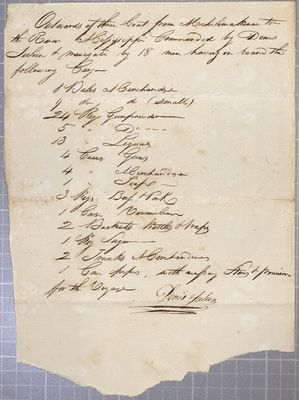 Outwards of the Boat from Michilimakinac to
the River Mississippi Commanded by Denis
Julien & navigated by 18 men having on board the
following Cargo
8 Bales Merchandize
9 do do (small)
24 Keg Gunpowder
5 " Do
13 " Liquor
4 Cases Guns
4 " Merchandize
" Soap
3 Kegs
1 Case Vermilion
2 Baskets Kettles & Traps
1 Keg Sugar
2 Trunks Merchandize
1 Case pipes, with necessary Stores & provisions
for the Voyage
Denis Julien